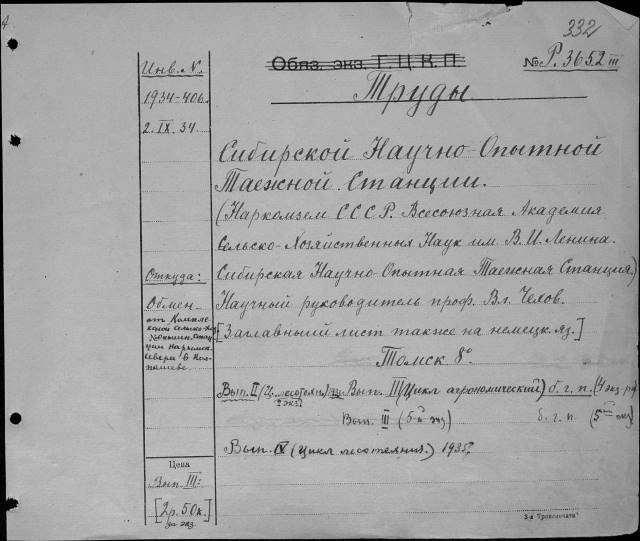 332
Обяз. экз. Г. Ц. К. П.
№ Р. 3652 III
Инв. N.
1934-406.
2. IX. 34.
Труды
Сибирской Научно-Опытной
Таежной Станции.
(Наркомзем СССР. Всесоюзная Академия
Сельско-Хозяйственных Наук им В. И. Ленина.
Сибирская Научно-Опытная Таежная Станция)
Научный руководитель проф. Вл. Чехов.
[Заглавный лист также на немецк. яз.]
Томск 8°.
Откуда:
Обмен-
от Компле
ксной сельско-хоз
Нарымск.
севера в Кол
пашеве
Вып. II (Ц. лесотехн) Вып. III (Цикл агрономический) б. г. п. (4 экз-ра)
2 экз.
Вып. III (5-й экз) б. г. п. (5-й экз)
Вып. IV (цикл лесотехнич.) 1935 г.
Цена
Вып. III:
[2 р. 50 к.]
за экз.
3-я "Транспечати"